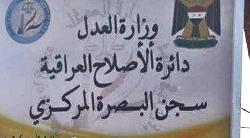 وزارة العدل
دائرة الأصلاح العراقية
سجن البصرة المركزي